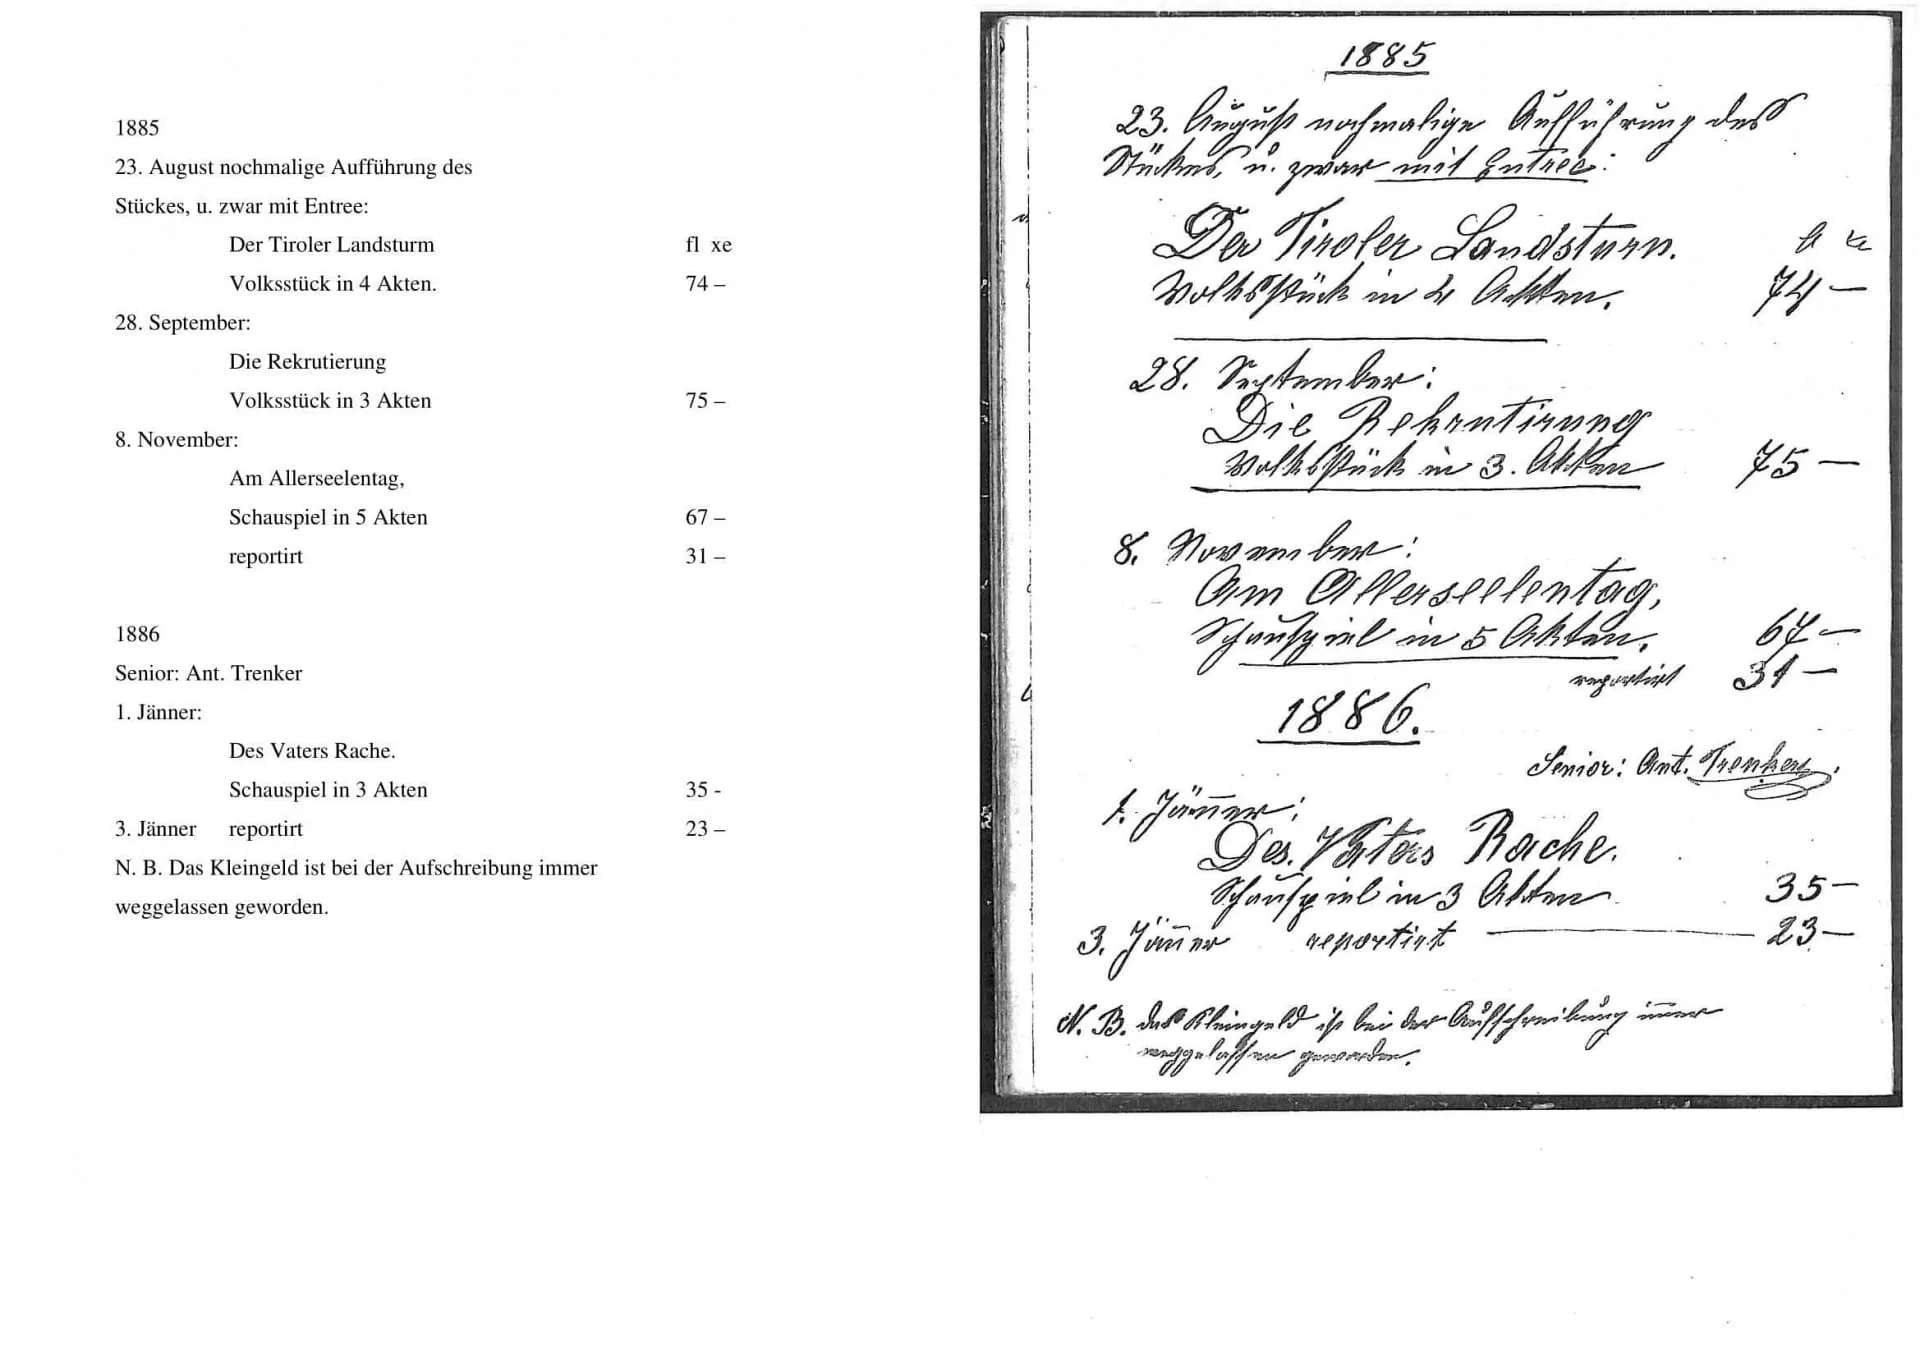 1885
23. August nochmalige Aufführung des
Stückes, u. zwar mit Entree:
Der Tiroler Landsturm fl xe
Volksstück in 4 Akten. 74 –
28. September:
Die Rekrutierung
Volksstück in 3 Akten 75 –
8. November:
Am Allerseelentag,
Schauspiel in 5 Akten 67 –
reportirt 31 –
1886
Senior: Ant. Trenker
1. Jänner:
Des Vaters Rache.
Schauspiel in 3 Akten 35 -
3. Jänner reportirt 23 –
N. B. Das Kleingeld ist bei der Aufschreibung immer
weggelassen geworden.
1885
23. August nochmalige Aufführung des
Stückes, u. zwar mit Entree:
Der Tiroler Landsturm. fl xe
Volksstück in 4 Akten. 74 –
28. September:
Die Rekrutirung
Volksstück in 3. Akten 75 –
8. November:
Am Allerseelentag,
Schauspiel in 5 Akten. 67 –
reportirt 31 –
1886.
Senior: Ant. Trenker.
1. Jänner:
Des Vaters Rache.
Schauspiel in 3 Akten 35 –
3. Jänner reportirt — 23 –
N. B. das Kleingeld ist bei der Aufschreibung im̅er
weggelassen geworden.